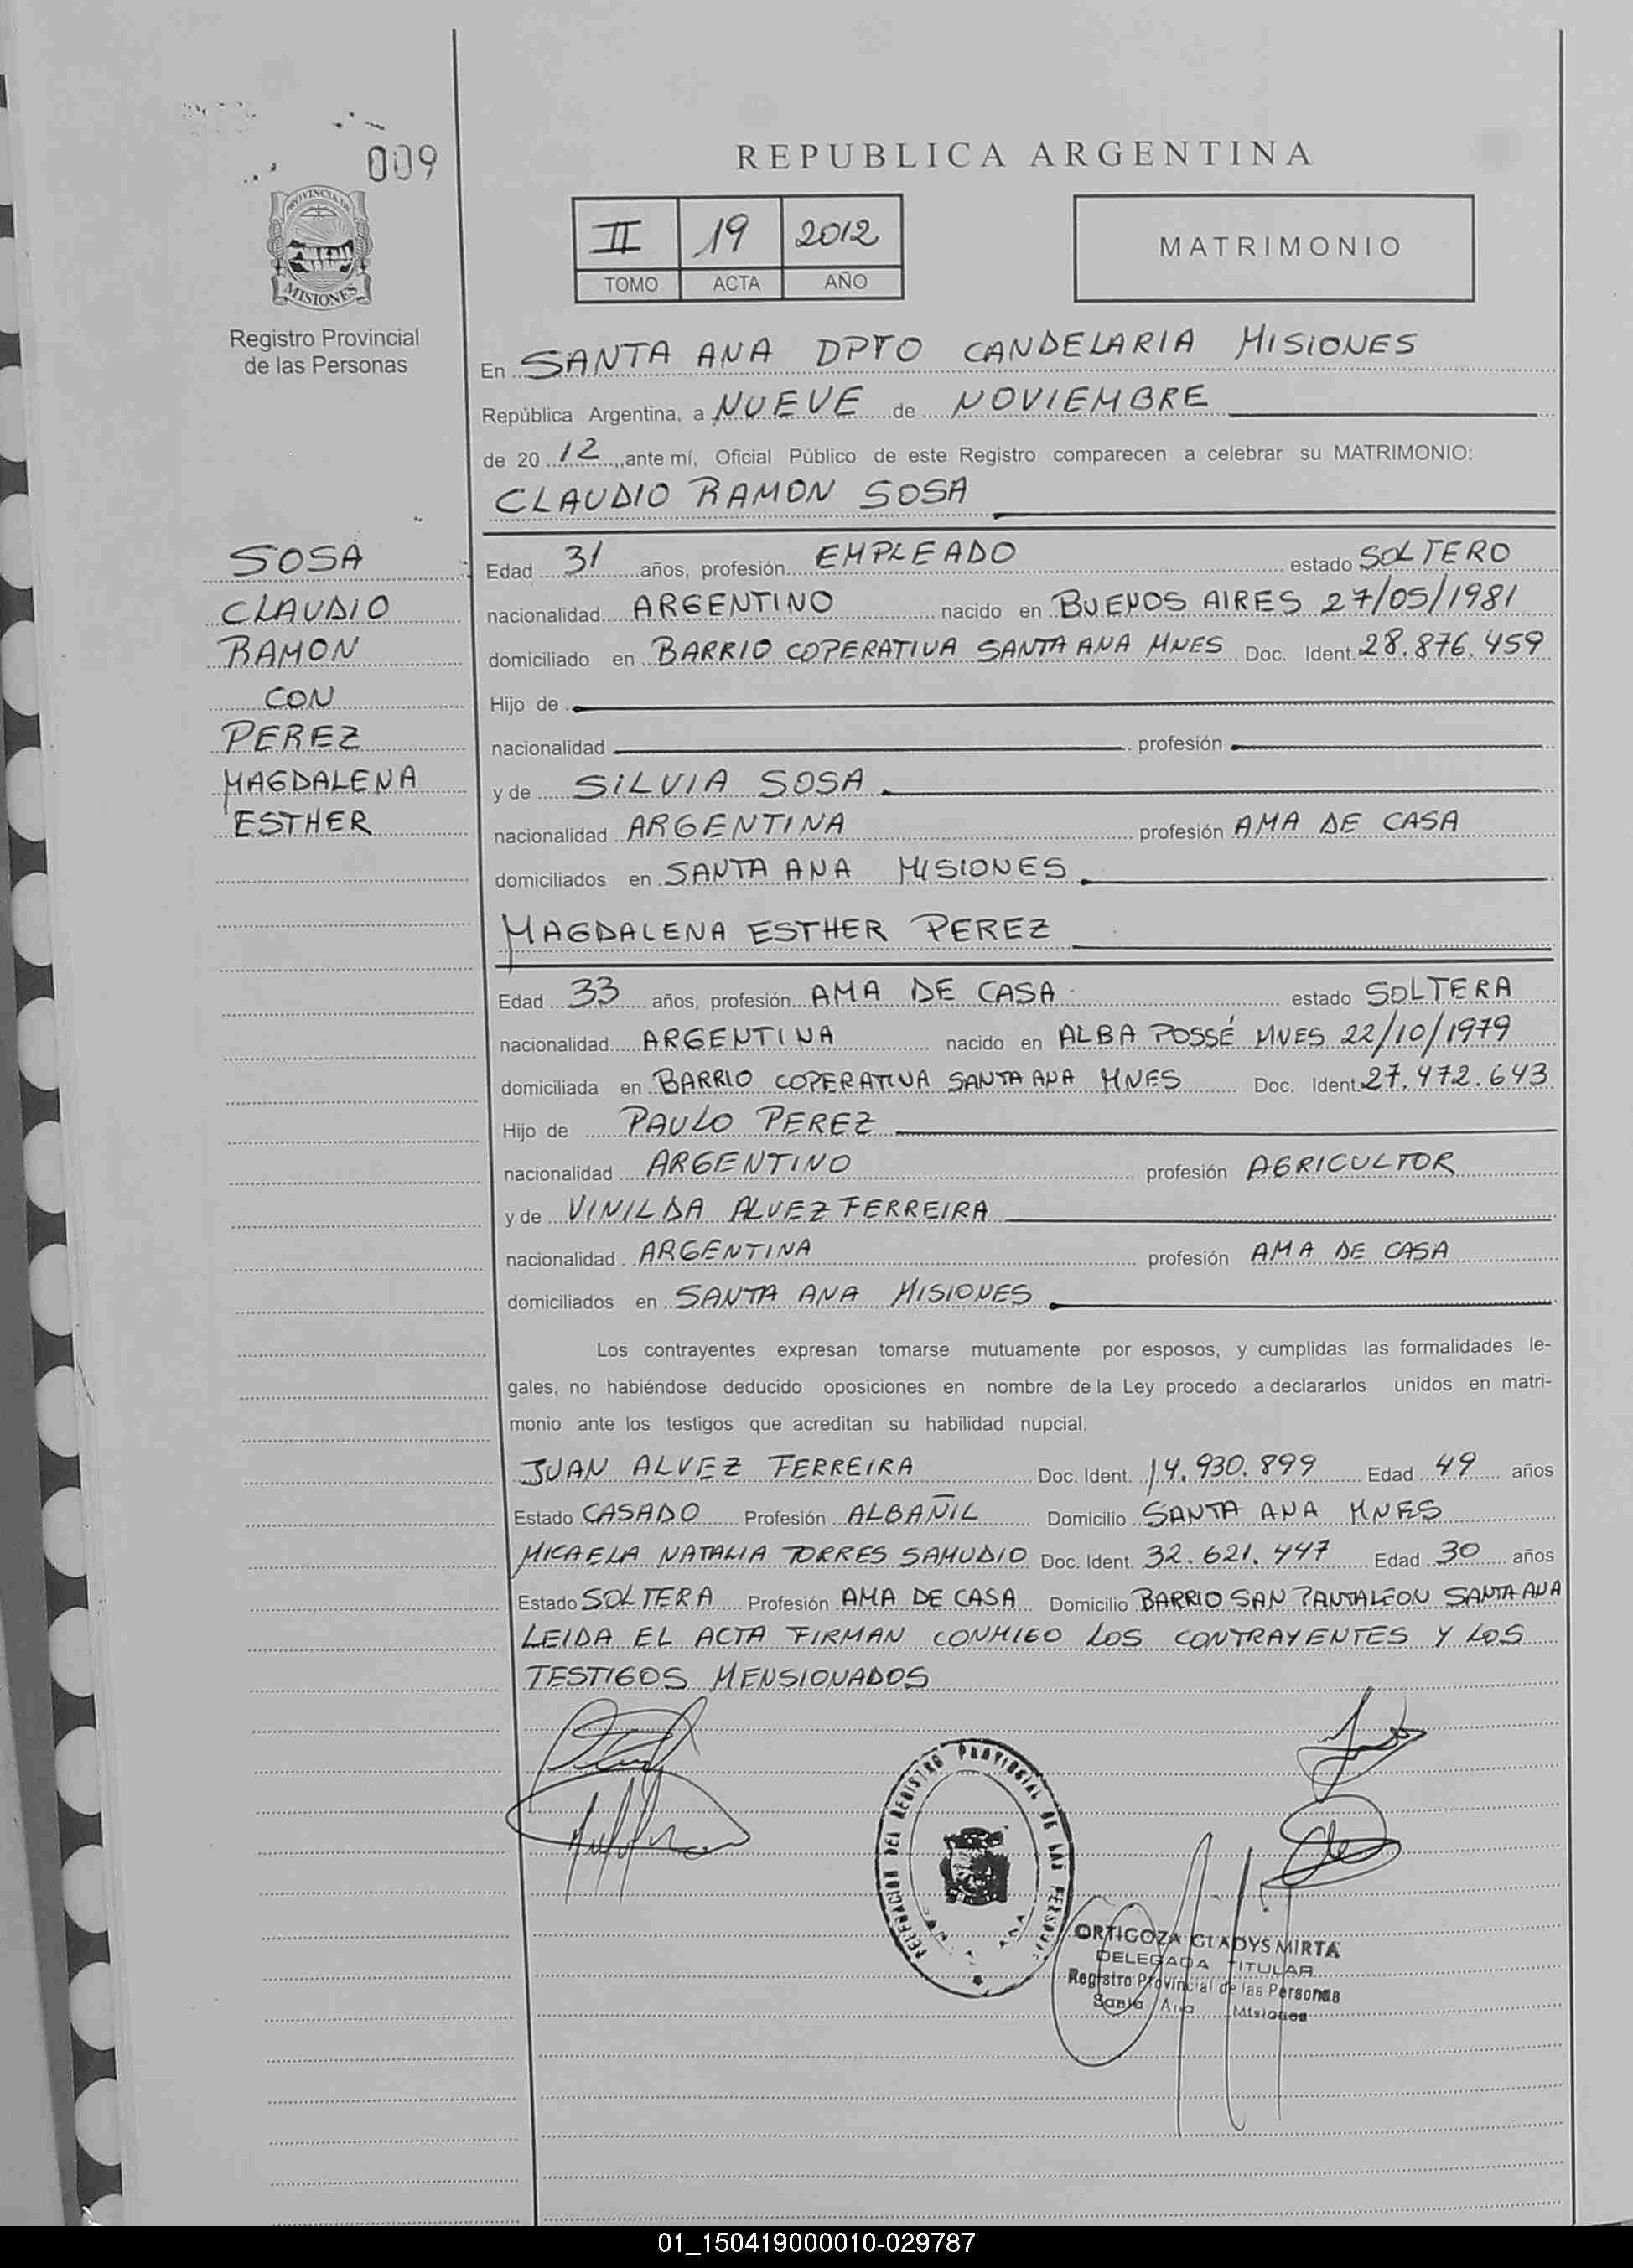 009
REPUBLICA ARGENTINA
II 19 2012
TOMO ACTA AÑO
MATRIMONIO
PROVINCIA DE
MISIONES
Registro Provincial
de las Personas
En SANTA ANA DPTO CANDELARIA MISIONES
República Argentina, a NUEVE de NOVIEMBRE
de 20 12, ante mí, Oficial Público de este Registro comparecen a celebrar su MATRIMONIO:
CLAUDIO RAMON SOSA
SOSA
CLAUDIO
RAMON
CON
PEREZ
MAGDALENA
ESTHER
Edad 31 años, profesión EMPLEADO estado SOLTERO
nacionalidad ARGENTINO nacido en BUENOS AIRES 27/05/1981
domiciliado en BARRIO COPERATIVA SANTA ANA MNES Doc. Ident. 28.876.459
Hijo de
nacionalidad profesión
y de SILVIA SOSA
nacionalidad ARGENTINA profesión AMA DE CASA
domiciliados en SANTA ANA MISIONES
MAGDALENA ESTHER PEREZ
Edad 33 años, profesión AMA DE CASA estado SOLTERA
nacionalidad ARGENTINA nacido en ALBA POSSÉ MNES 22/10/1979
domiciliada en BARRIO COPERATIVA SANTA ANA MNES Doc. Ident. 27.472.643
Hijo de PAULO PEREZ
nacionalidad ARGENTINO profesión AGRICULTOR
y de VINILDA ALVEZ FERREIRA
nacionalidad ARGENTINA profesión AMA DE CASA
domiciliados en SANTA ANA MISIONES
Los contrayentes expresan tomarse mutuamente por esposos, y cumplidas las formalidades le-
gales, no habiéndose deducido oposiciones en nombre de la Ley procedo a declararlos unidos en matri-
monio ante los testigos que acreditan su habilidad nupcial.
JUAN ALVEZ FERREIRA Doc. Ident. 14.930.899 Edad 49 años
Estado CASADO Profesión ALBAÑIL Domicilio SANTA ANA MNES
MICAELA NATALIA TORRES SAMUDIO Doc. Ident. 32.621.447 Edad 30 años
Estado SOLTERA Profesión AMA DE CASA Domicilio BARRIO SAN PANTALEON SANTA ANA
LEIDA EL ACTA FIRMAN CONMIGO LOS CONTRAYENTES Y LOS
TESTIGOS MENSIONADOS
DELEGACION DEL REGISTRO PROVINCIAL DE LAS PERSONAS
ORTIGOZA GLADYS MIRTA
DELEGADA TITULAR
Registro Provincial de las Personas
Santa Ana Misiones
01_150419000010-029787